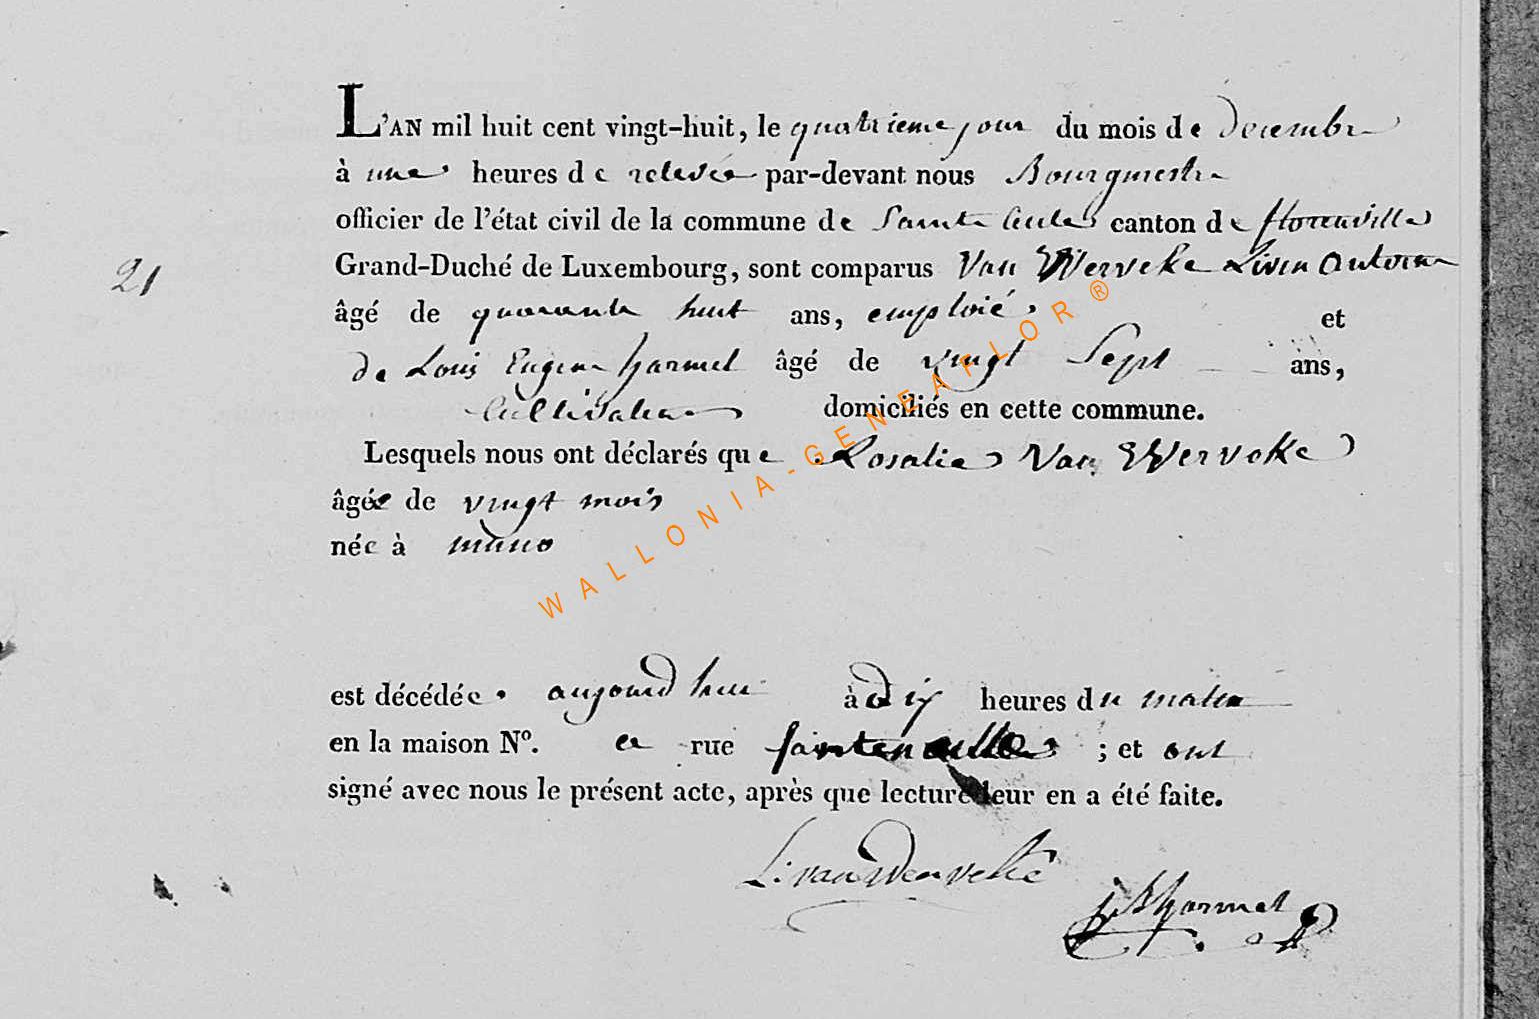 L'AN mil huit cent vingt-huit, le quatrieme jour du mois de decembre
à une heures de relevée par-devant nous Bourgmestre
officier de l'état civil de la commune de Sainte Cecile canton de florenville
21
Grand-Duché de Luxembourg, sont comparus Van Werveke Livin Antoine
âgé de quarante huit ans, emploié et
de Louis Eugene harmel âgé de vingt Sept ans,
Cultivateur domiciliés en cette commune.
Lesquels nous ont déclarés que Rosalie Van Werveke
âgée de vingt mois
née à muno
est décédée aujourd hui à dix heures du matin
en la maison Nº. rue ; et ont
signé avec nous le présent acte, après que lecture leur en a été faite.
L. van Werveke
harmel
WALLONIA-GENEAFLOR®